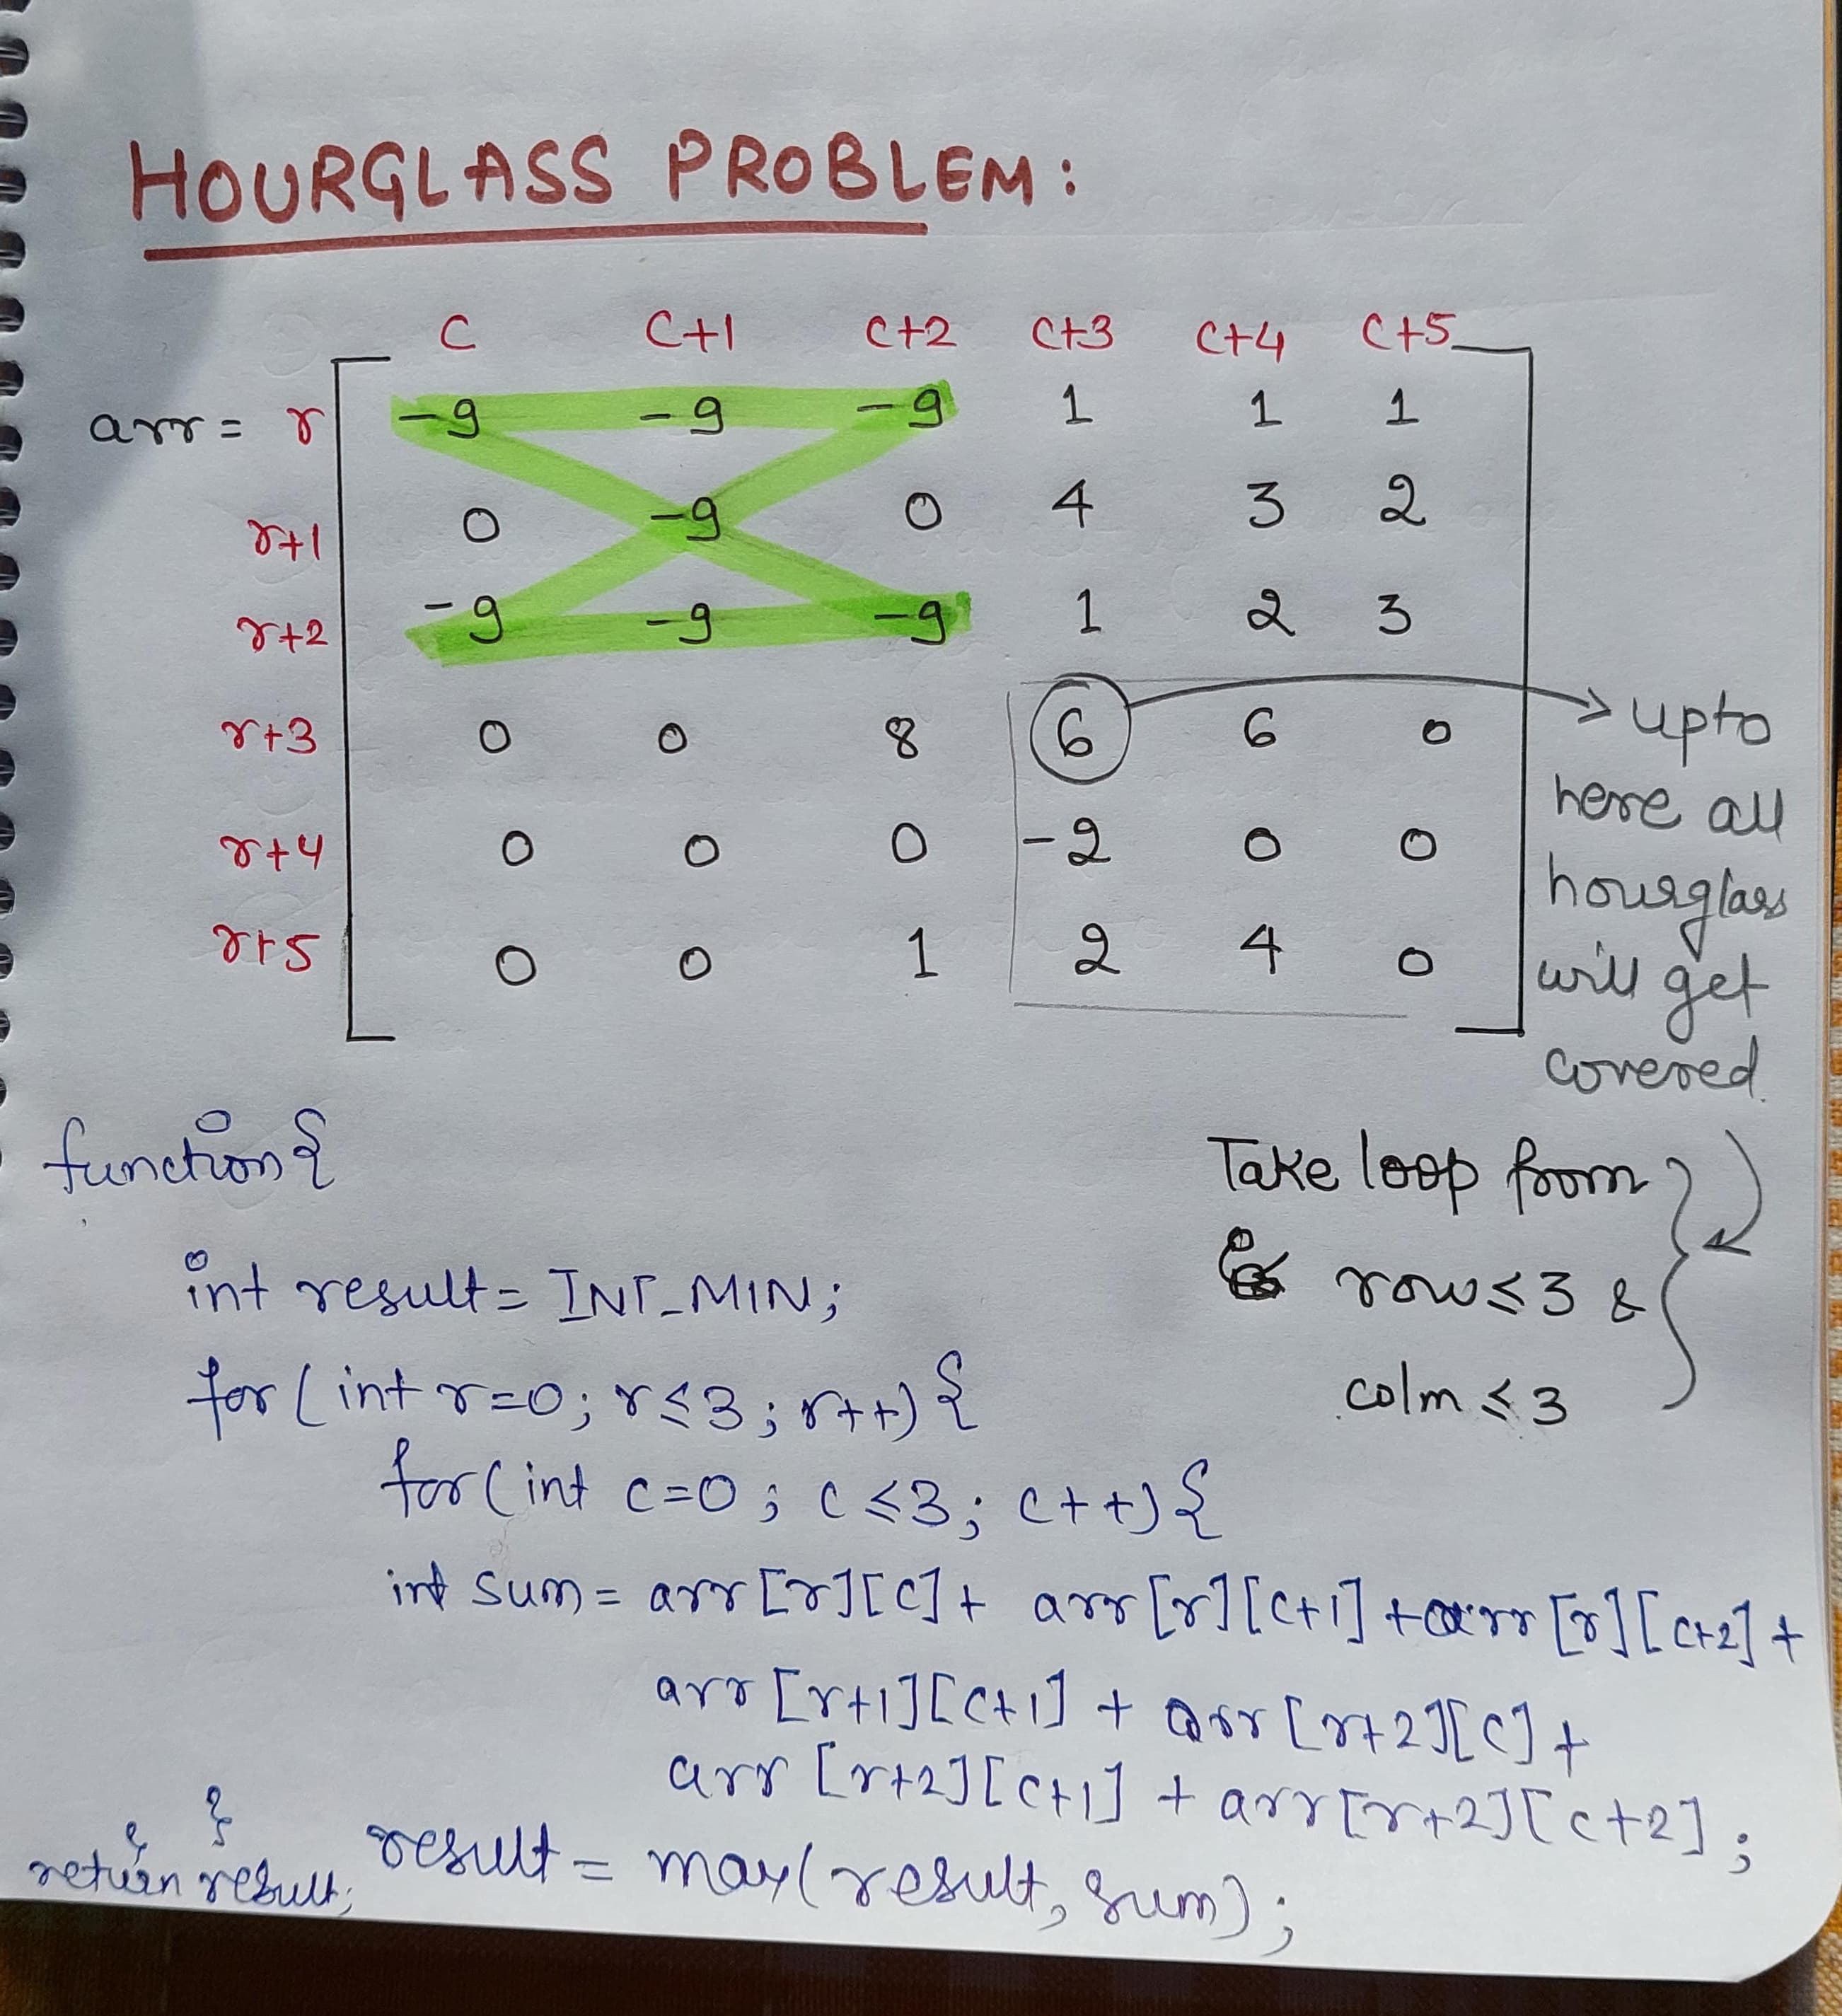 HOURGLASS PROBLEM:
C C+1 C+2 C+3 C+4 C+5
arr = r -9 -9 -9 1 1 1
r+1 0 -9 0 4 3 2
r+2 -9 -9 -9 1 2 3
r+3 0 0 8 6 6 0
r+4 0 0 0 -2 0 0
r+5 0 0 1 2 4 0
upto
here all
hourglass
will get
covered.
function{
Take loop from
row ≤ 3 &
colm ≤ 3
int result = INT_MIN;
for (int r=0; r≤3; r++) {
for (int c=0; c≤3; c++) {
int sum = arr[r][c] + arr[r][c+1] + arr[r][c+2] +
arr[r+1][c+1] + arr[r+2][c] +
arr[r+2][c+1] + arr[r+2][c+2];
result = max(result, sum);
}
}
return result;